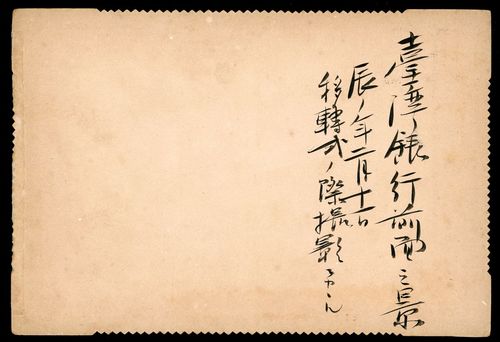 臺灣銀行前面之景
辰ノ年二月十一日
移轉式ノ際撮影